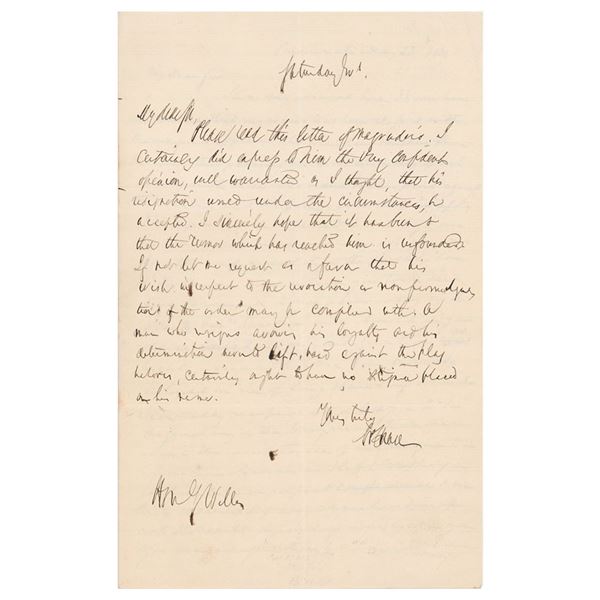 Saturday
My dear Sir,
Please read this letter of Magruder's. I
certainly did express to him the very confident
opinion, well warranted as I thought, that his
resignation would under the circumstances, be
accepted. I sincerely hope that it has been &
that the rumor which has reached him is unfounded.
If not let me request as a favor that his
wish in respect to the revocation or
of the order may be complied with. A
man who resigns avowing his loyalty and his
determination never to lift hand against the flag
he loves, certainly ought to have no stigma placed
on his name.
Yours truly
Hon G Welles